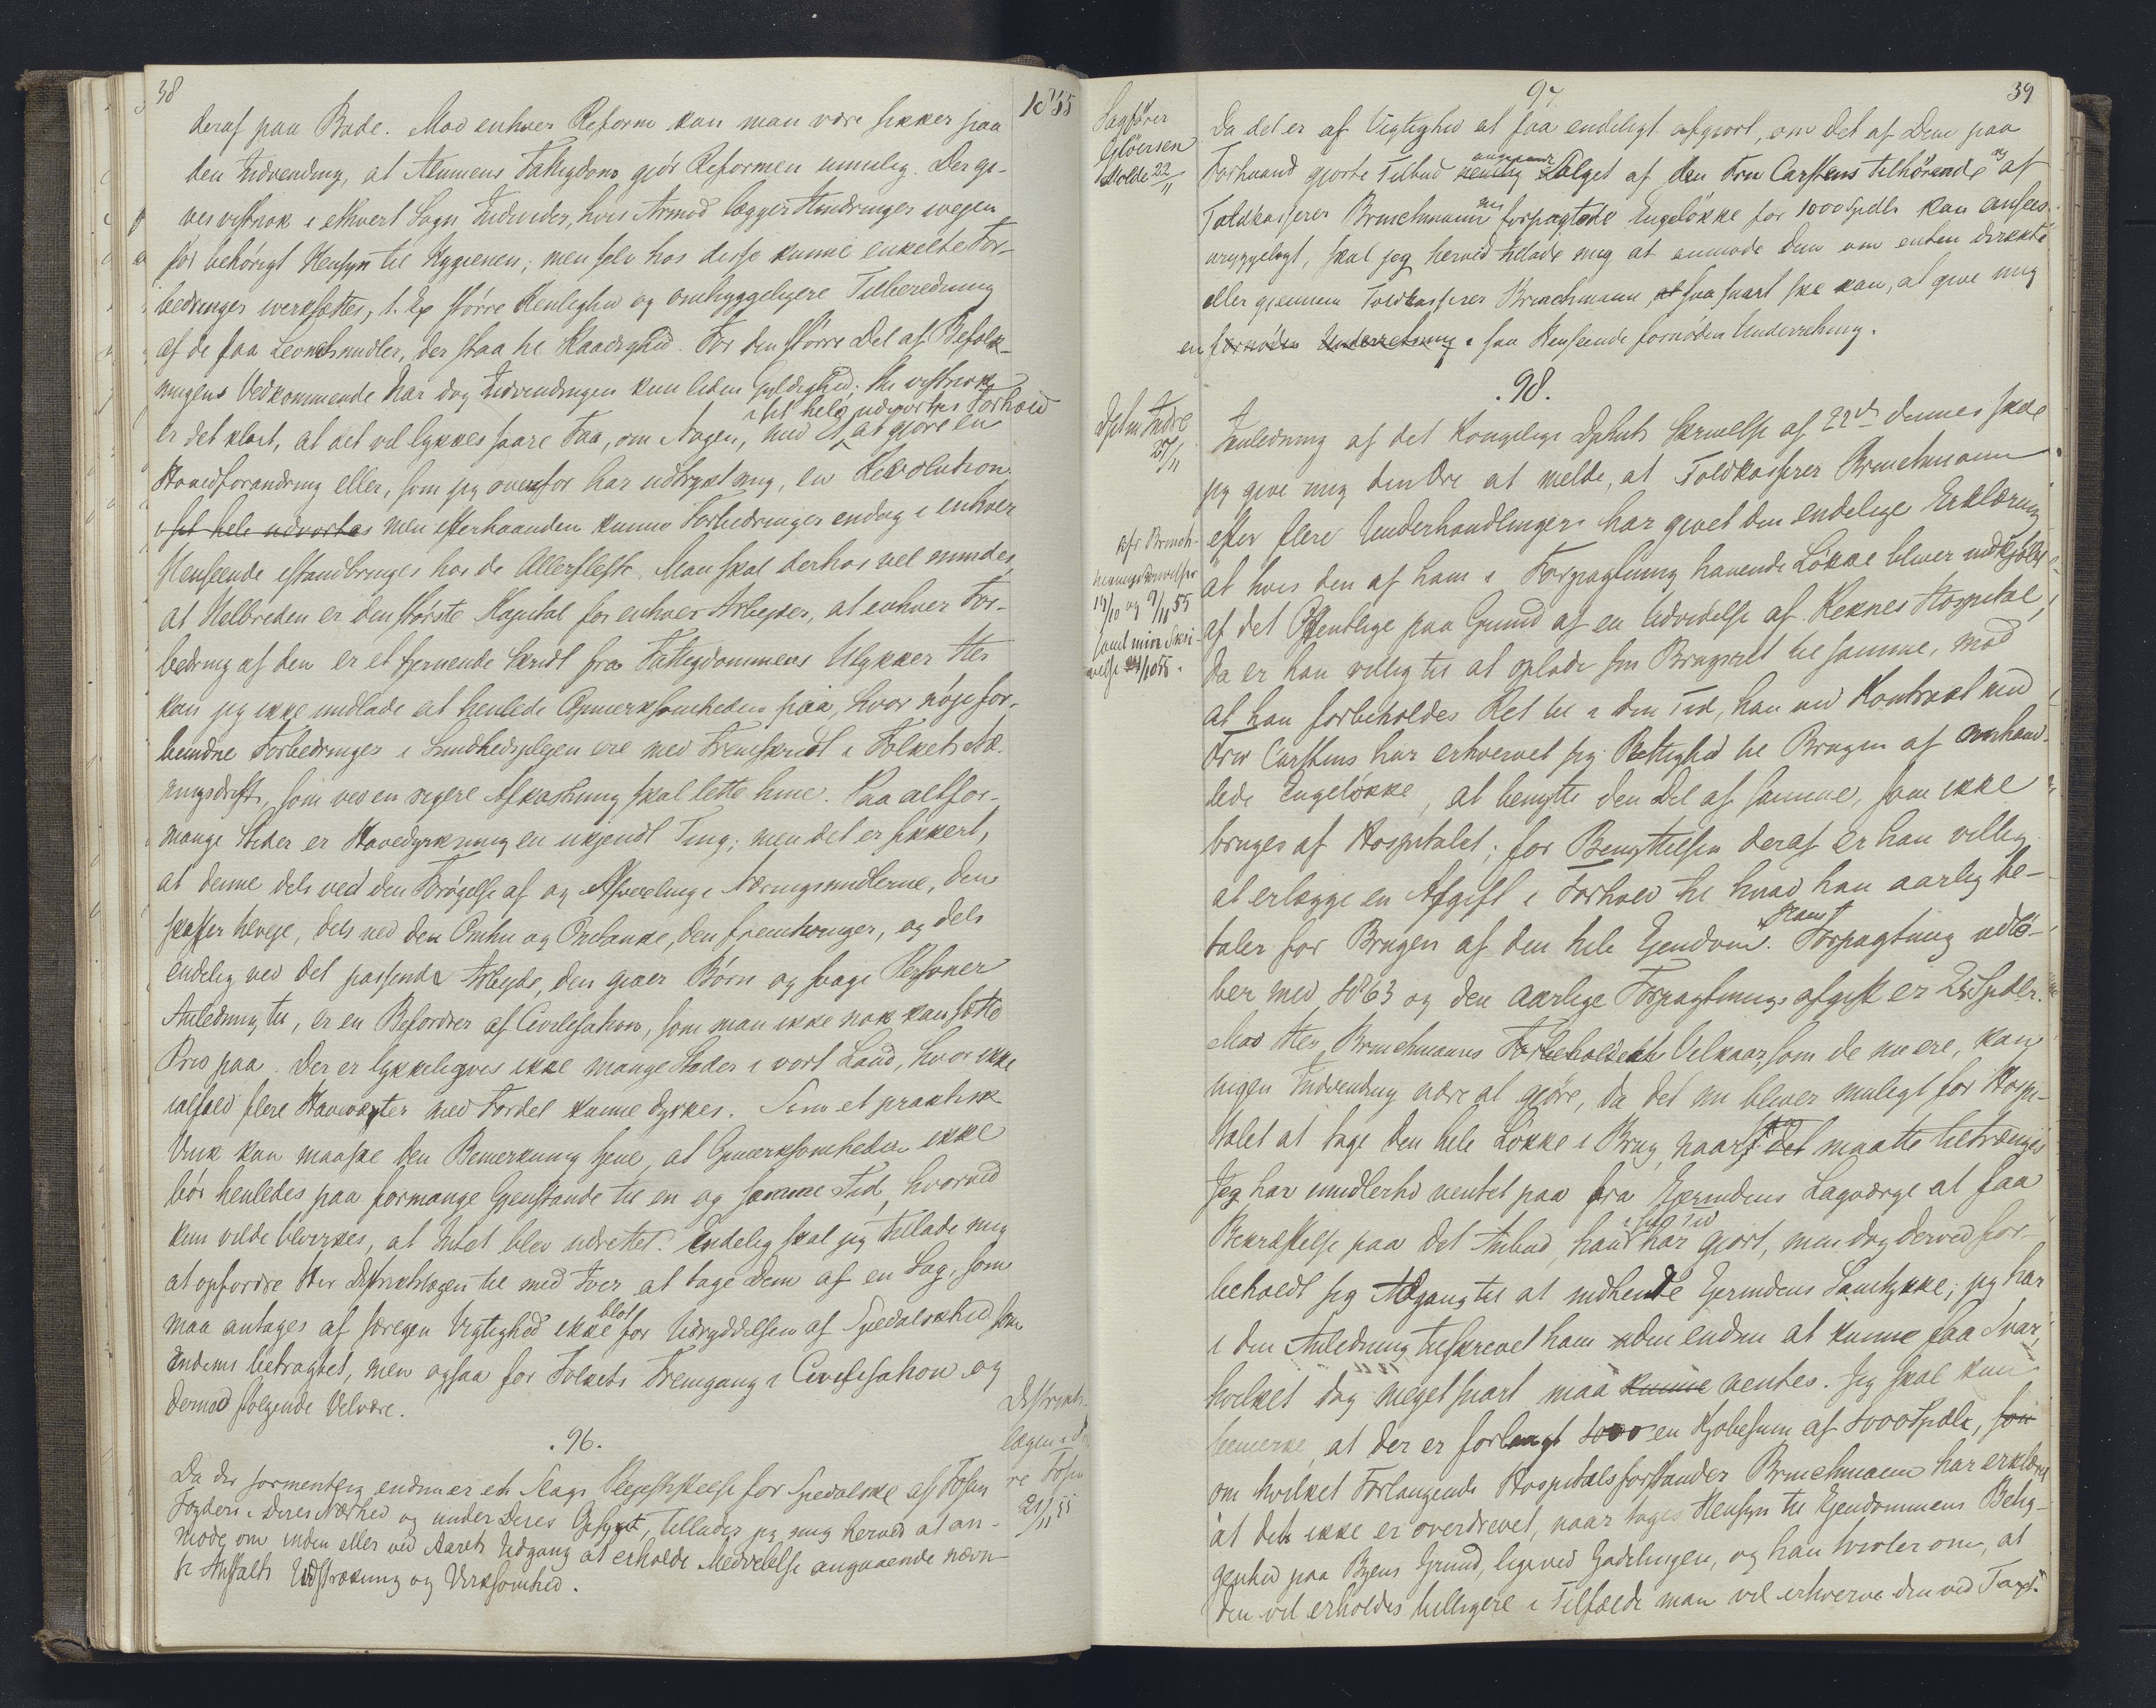 38
1855
deraf paa Bade. Mod enhver Reform kan man være sikker paa
den Indvending, at Almuens Fattigdom gjör Reformen umulig. Der gi-
ves vistnok i ethvert Sogn Individer, hvis Armod lægger Hindringer iveien
for behörigt Hensyn til Hygienen; men selv hos disse kunne enkelte For-
bedringer iverksættes, t. Ex större Renlighed og omhyggeligere Tilberedning
af de faa Levnetsmidler, der staa til Raadighed. For den större Del af Befolk-
ningens Vedkommende har dog Indvendingen kun liden Gyldighed; thi vistnok
i sit hele udvortes Forhold
er det klart, at det vil lykkes saare Faa, om Nogen, med Et at gjöre en
Hovedforandring eller, som jeg ovenfor har udtrykt mig, en Revolution
i sit hele udvortes men efterhaanden kunne Forbedringer endog i enhver
Henseende istandbringes hos de Allerfleste. Man skal derhos vel mindes,
at Helbreden er den störste Kapital for enhver Arbeider, at enhver For-
bedring af den er et fjernende Skridt fra Fattigdommens Ulykker. Her
kan jeg ikke undlade at henlede Opmerksomheden paa, hvor nöje for-
bundne Forbedringer i Sundhedsplejen ere med Fremskridt i Folkets Næ-
ringsdrift, som ved en rigere Afkastning skal lette hine. Paa altfor-
mange Steder er Havedyrkning en ukjendt Ting; men det er sikkert,
at denne dels ved den Forögelse af og Afvexling i Næringsmidlerne, den
skaffer tilveje, dels ved den Omhu og Omtanke, den fremtvinger, og dels
endelig ved det passende Arbejde, den giver Börn og svage Personer
Anledning til, er en Befordrer af Civilisation, som man ikke nok kan sætte
Pris paa. Der er lykkeligvis ikke mange Steder i vort Land, hvor ikke
ialfald flere Havevæxter med Fordel kunne dyrkes. Som et praktisk
Vink kan maaske den Bemerkning tjene, at Opmerksomheden ikke
bör henledes paa formange Gjenstande til en og samme Tid, hvorved
kun vilde bevirkes, at Intet blev udrettet. Endelig skal jeg tillade mig
at opfordre Her Distriktslægen til med Iver at tage Dem af en Sag, som
blot
maa antages af særegen Vigtighed ikke for Udryddelsen af Spedalskhed som
Endemi betragtet, men ogsaa for Folkets Fremgang i Civilisation og
dermed fölgende Velvære.
.96.
Distrikts-
lægen i
re Fosen
21/11 55
Da der formentlig endnu er et Slags Plejestiftelse for Spedalske af Fosens
Fogderi i Deres Nærhed og under Deres Opsyn, tillader jeg mig herved at an-
mode om inden eller ved Aarets Udgang at erholde Meddelelse angaaende nævn-
te Anstalts Udstrækning og Virksomhed.
39
97.
Sagförer
Glöersen
Molde 22/11
Da det er af Vigtighed at faa endeligt afgjort, om det af Dem paa
angaaende
Forhaand gjorte Tilbud Salget af den Fru Carstens tilhörende og af
Toldkasserer Bruchmann forpagtede Engelökke for 1000 Spdlr kan ansees
uryggeligt, skal jeg herved tillade mig at anmode Dem om enten direkte
eller gjennem Toldkasserer Bruchmann, saa snart ske kan, at give mig
en fornöden Underretning i saa Henseende fornöden Underretning.
.98.
Dptm Indre
27/11
Anledning af det Kongelige Dptmts Skrivelse af 22de dennes skal
jeg give mig den Ære at melde, at Toldkasserer Bruchmann
kfr Bruch-
manns Skrivelser
19/10 og 9/11 55
samt min Skri-
velse
efter flere Underhandlinger har givet den endelige Erklæring
at hvis den af ham i Forpagtning havende Lökke bliver indkjöbt
af det Offentlige paa Grund af en Udvidelse af Reknes Hospital,
da er han villig til at oplade sin Brugsret til samme, mod
at han forbeholdes Ret til i den Tid, han ved Kontrakt med
Fru Carstens har erhvervet sig Rettighed til Brugen af omhand-
lede Engelökke, at benytte den Del af samme, som ikke
bruges af Hospitalet; for Benyttelsen deraf er han villig
at erlægge en Afgift i Forhold til hvad han aarlig be-
Hans
taler for Brugen af den hele Ejendom. Forpagtning udlö-
ber med 1863 og den aarlige Forpagtningsafgift er 25 Spdlr.
Mod Her Bruchmanns Forbeholdelse Vilkaar, som de nu ere, kan
ingen Indvending være at gjöre, da det nu bliver muligt for Hospi-
talet at tage den hele Lökke i Brug, naar det maatte tiltrænges
Jeg har imidlertid ventet paa fra Ejerindens Lagværge at faa
i sin Tid
Bekræftelse paa det Anbud, han har gjort, men dog derved for-
beholdt sig Adgang til at indhente Ejerindens Samtykke; jeg har
i den Anledning tilskrevet ham uden endnu at kunne faa Svar,
hvilket dog meget snart maa kunne ventes. Jeg skal kun
bemerke, at der er forlangt 1000 en Kjöbesum af 1000 Spdlr, som
om hvilket Forlangende Hospitalsforstander Bruchmann har erklæret
at det ikke er overdrevet, naar tages Hensyn til Ejendommens Belig-
genhed paa Byens Grund, ligeved Gadelinjen, og han tvivler om, at
den vil erholdes billigere i Tilfælde man vil erhverve den ved Taxt.